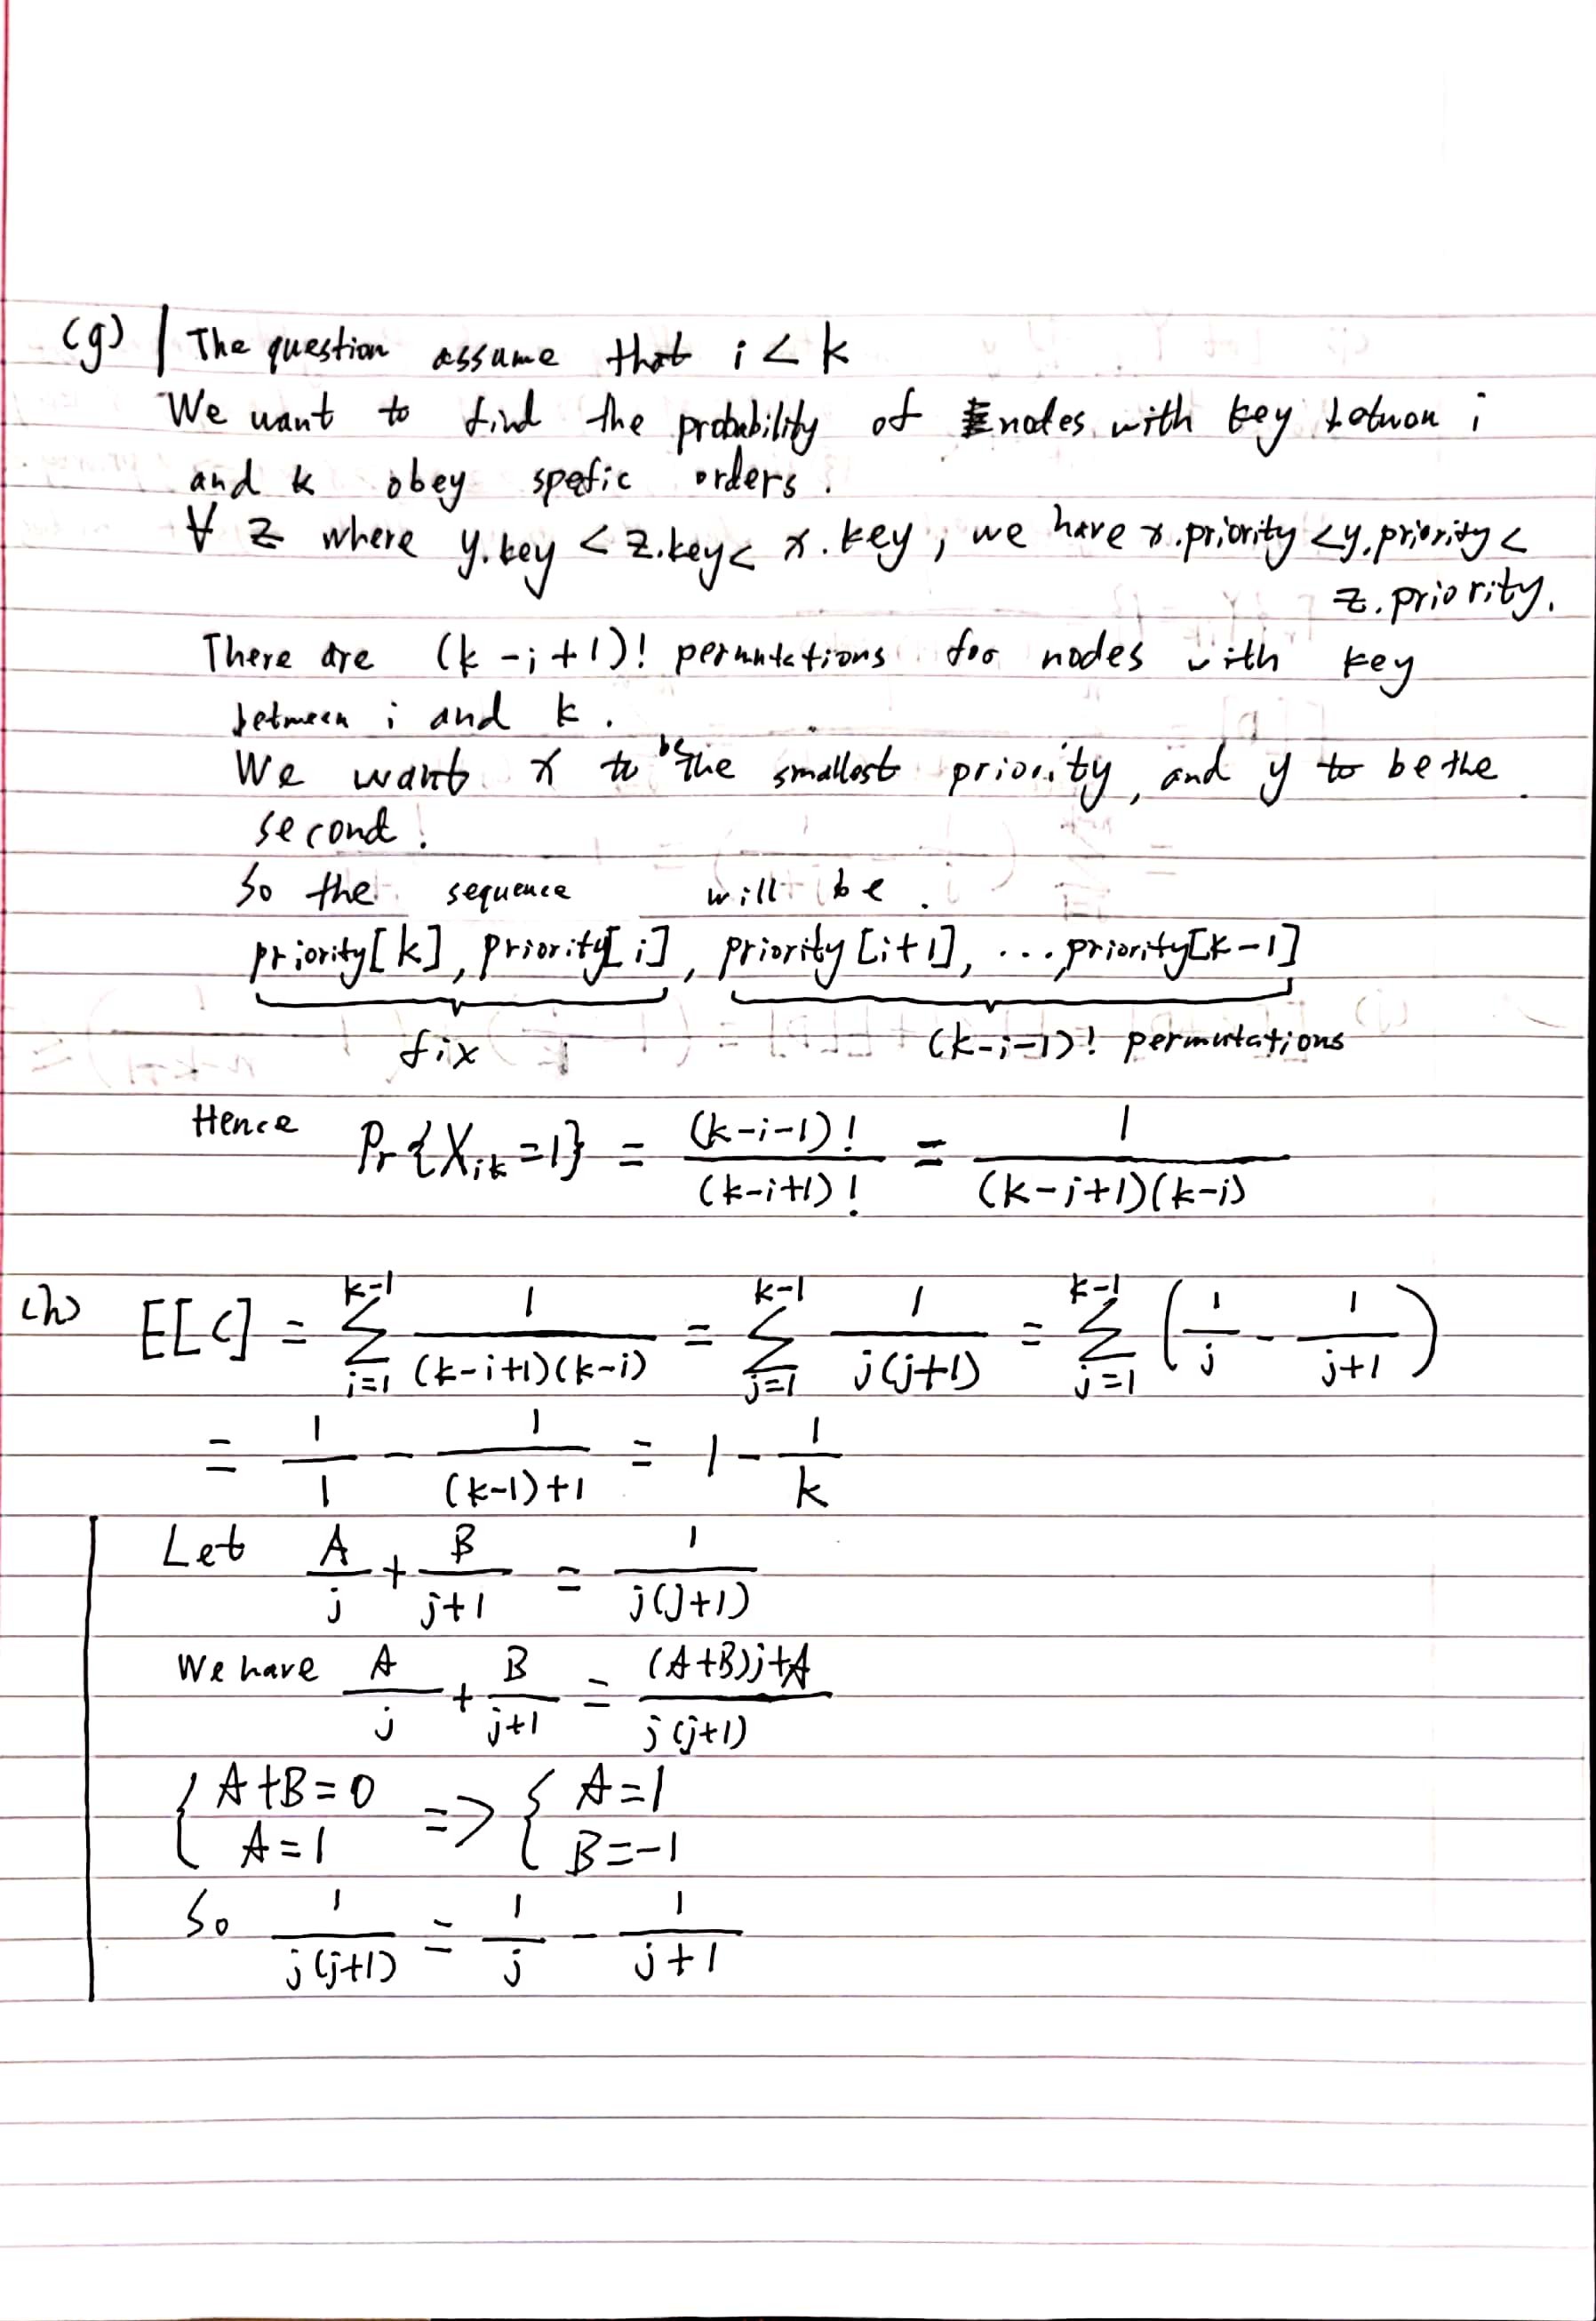 (g) | The question assume that i < k
We want to find the probability of nodes with key between i
and k obey spefic orders.
∀ z where y.key < z.key < x.key, we have x.priority < y.priority <
z.priority.
There are (k-i+1)! permutations for nodes with key
between i and k.
We want x to be the smallest priority, and y to be the
second.
So the sequence will be
priority[k], priority[i], priority[i+1], ..., priority[k-1]
fix (k-i-1)! permutations
Hence Pr{X_ik = 1} = (k-i-1)! / (k-i+1)! = 1 / (k-i+1)(k-i)
(h) E[C] = Σ_{i=1}^{k-1} 1/((k-i+1)(k-i)) = Σ_{j=1}^{k-1} 1/(j(j+1)) = Σ_{j=1}^{k-1} (1/j - 1/(j+1))
= 1/1 - 1/((k-1)+1) = 1 - 1/k
Let A/j + B/(j+1) = 1/(j(j+1))
We have A/j + B/(j+1) = ((A+B)j+A)/(j(j+1))
{ A+B=0 => { A=1
A=1 B=-1
So 1/(j(j+1)) = 1/j - 1/(j+1)